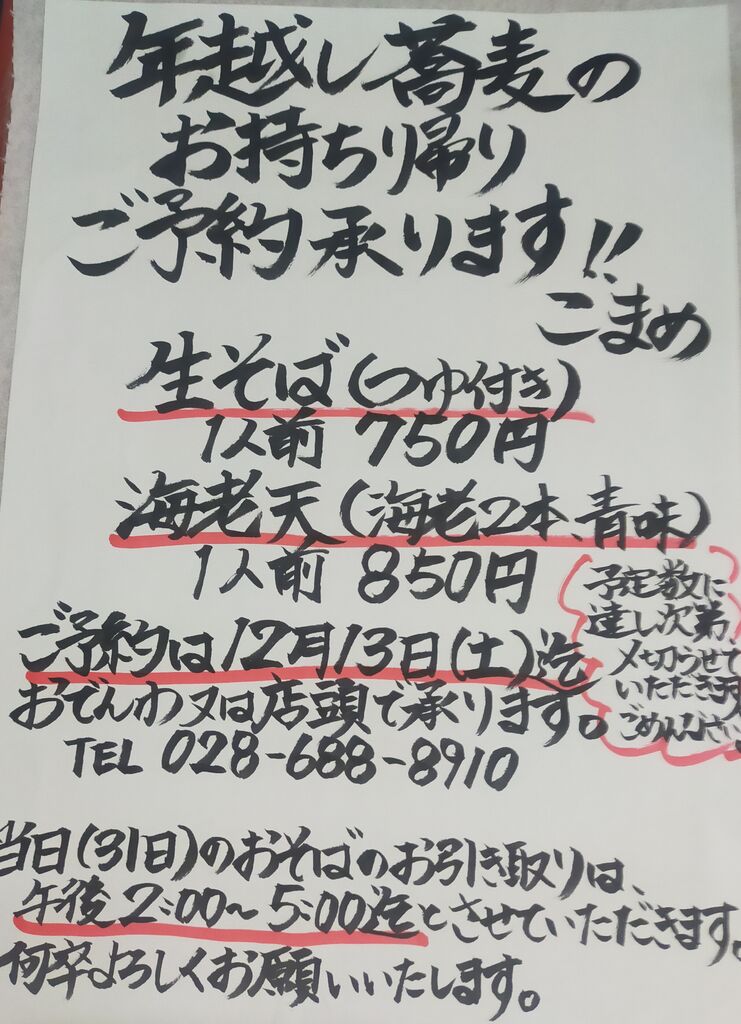 年越し蕎麦の
お持ち帰り
ご予約承ります!!
こまめ
生そば(つゆ付き)
1人前 750円
海老天(海老2本、青味)
1人前 850円
ご予約は12月13日(土)迄
おでんわ又は店頭で承ります。
TEL 028-688-8910
予定数に
達し次第、
〆切らせて
いただきます
ごめんなさい。
当日(31日)のおそばのお引き取りは、
午後2:00～5:00迄とさせていただきます。
何卒よろしくお願いいたします。